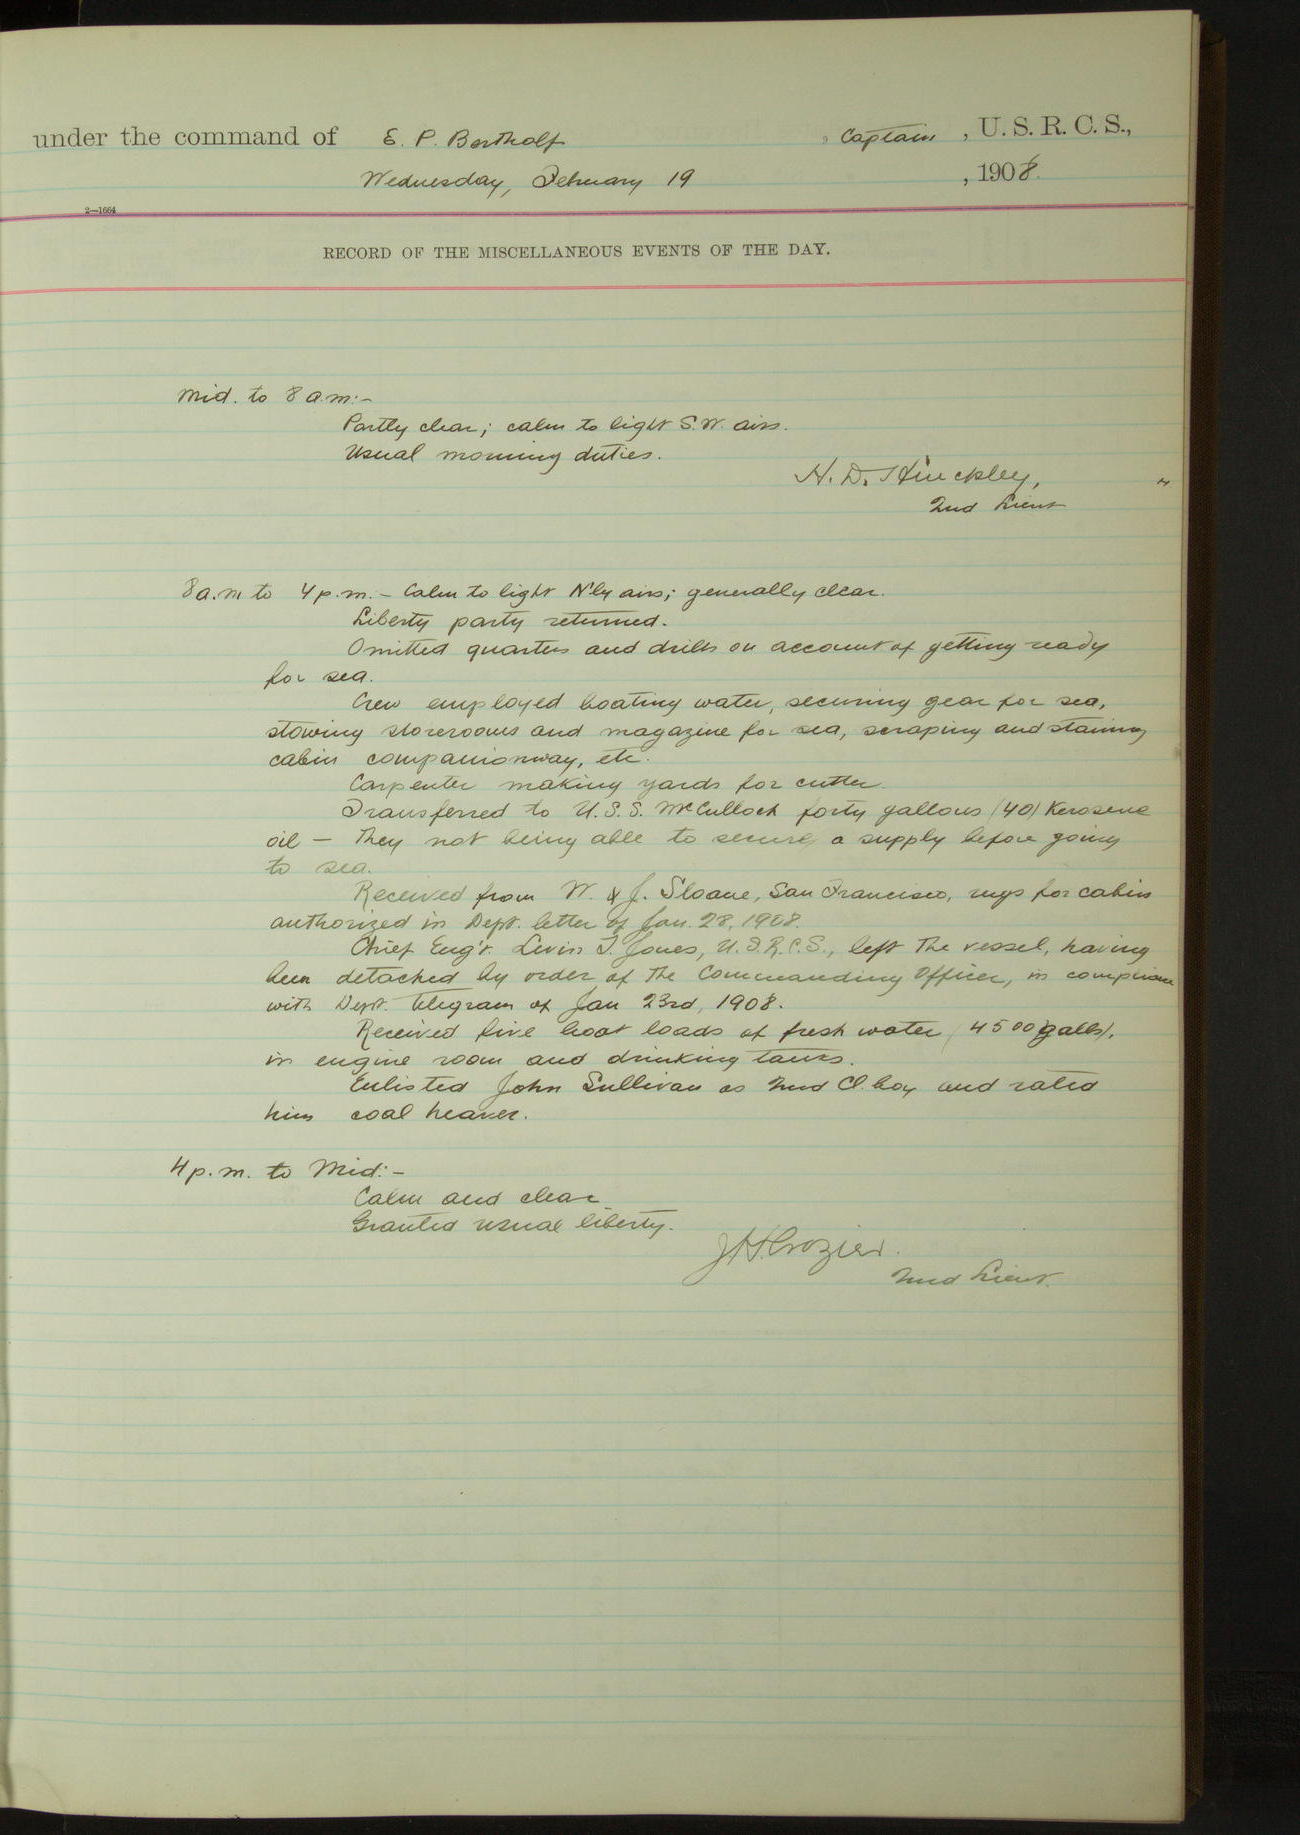 under the command of E. P. Bertholf , Captain , U. S. R. C. S.,
Wednesday, February 19 , 1908.
2—1664
RECORD OF THE MISCELLANEOUS EVENTS OF THE DAY.
Mid. to 8 a.m:-
Partly clear; calm to light S.W. airs.
Usual morning duties.
H. D. Hinckley,
2nd Lieut
8 a.m to 4 p.m. - Calm to light N'ly airs; generally clear.
Liberty party returned.
Omitted quarters and drills on account of getting ready
for sea.
Crew employed boating water, securing gear for sea,
stowing storerooms and magazine for sea, scraping and staining
cabin companionway, etc.
Carpenter making yards for cutter.
Transferred to U. S. S. McCulloch forty gallons (40) Kerosene
oil — they not being able to secure a supply before going
to sea.
Received from W. & J. Sloane, San Francisco, rugs for cabin
authorized in Dept. letter of Jan. 28, 1908.
Chief Eng'r. Levin T. Jones, U. S. R. C. S., left the vessel, having
been detached by order of the Commanding Officer, in compliance
with Dept. telegram of Jan 23rd, 1908.
Received five boat loads of fresh water (4500 galls),
in engine room and drinking tanks.
Enlisted John Sullivan as 2nd Cl. boy and rated
him coal heaver.
4 p. m. to Mid:-
Calm and clear
Granted usual liberty.
J H Crozier.
2nd Lieut.